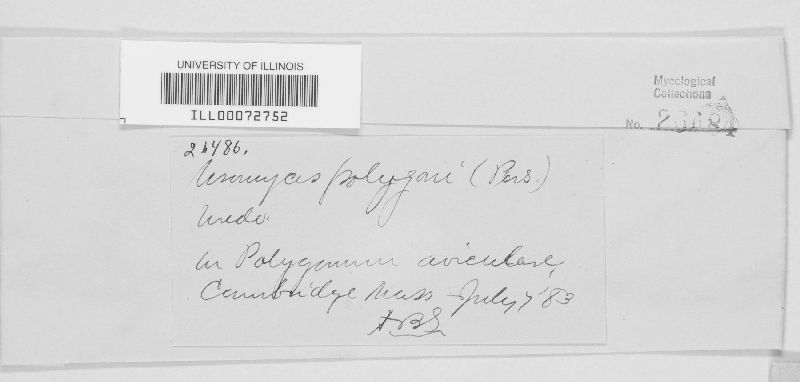 UNIVERSITY OF ILLINOIS
ILL00072752
Mycological
Collections
No.
Uromyces polygoni (Pers.)
Uredo
on Polygonum aviculare,
Cambridge Mass July 7 '83
ABS